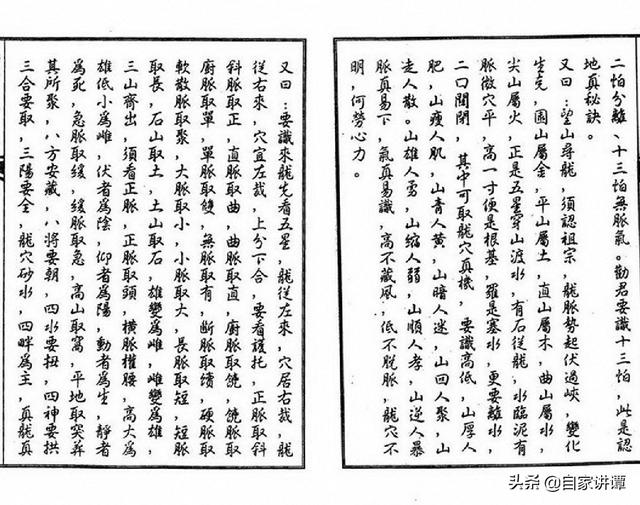 二怕分離、十三怕無脈氣。勸君要識十三怕，此是認
地真秘訣。
又曰：望山尋龍，須認祖宗，龍脈勢起伏過峽，變化
生克，圓山屬金，平山屬土，直山屬木，曲山屬水，
尖山屬火，正是五星穿山渡水，有石從龍，水臨泥有
脈微穴平，高一寸便是根基，羅是塞水，更要離水，
二口關閉，其中可取龍穴真機，要識高低，山厚人
肥，山瘦人肌，山青人黃，山暗人迷，山回人聚，山
走人散。山雄人勇，山縮人弱，山順人孝，山逆人暴
脈真易下，氣真易識，高不藏風，低不脫脈，龍穴不
明，何勞心力。
又曰：要識來龍先看五星，龍從左來，穴居右哉，龍
從右來，穴宜左哉，上分下合，要看護托，正脈取斜
斜脈取正，直脈取曲，曲脈取直，廚脈取饒，饒脈取
廚脈取單，單脈取雙，無脈取有，斷脈取續，硬脈取
軟散脈取聚，大脈取小，小脈取大，長脈取短，短脈
取長，石山取土，土山取石，雄變為雌，雌變為雄，
三山齊出，須看正脈，正脈取頭，橫脈權腰，高大為
雄低小為雌，伏者為陰，仰者為陽，動者為生，靜者
為死，急脈取緩，緩脈取急，高山取窩，平地取突葬
其所聚，八方安藏，八將要朝，四水要扭，四神要拱
三合要取，三陽要全，龍穴砂水，四畔為主，真龍真
头条 @自家讲谭